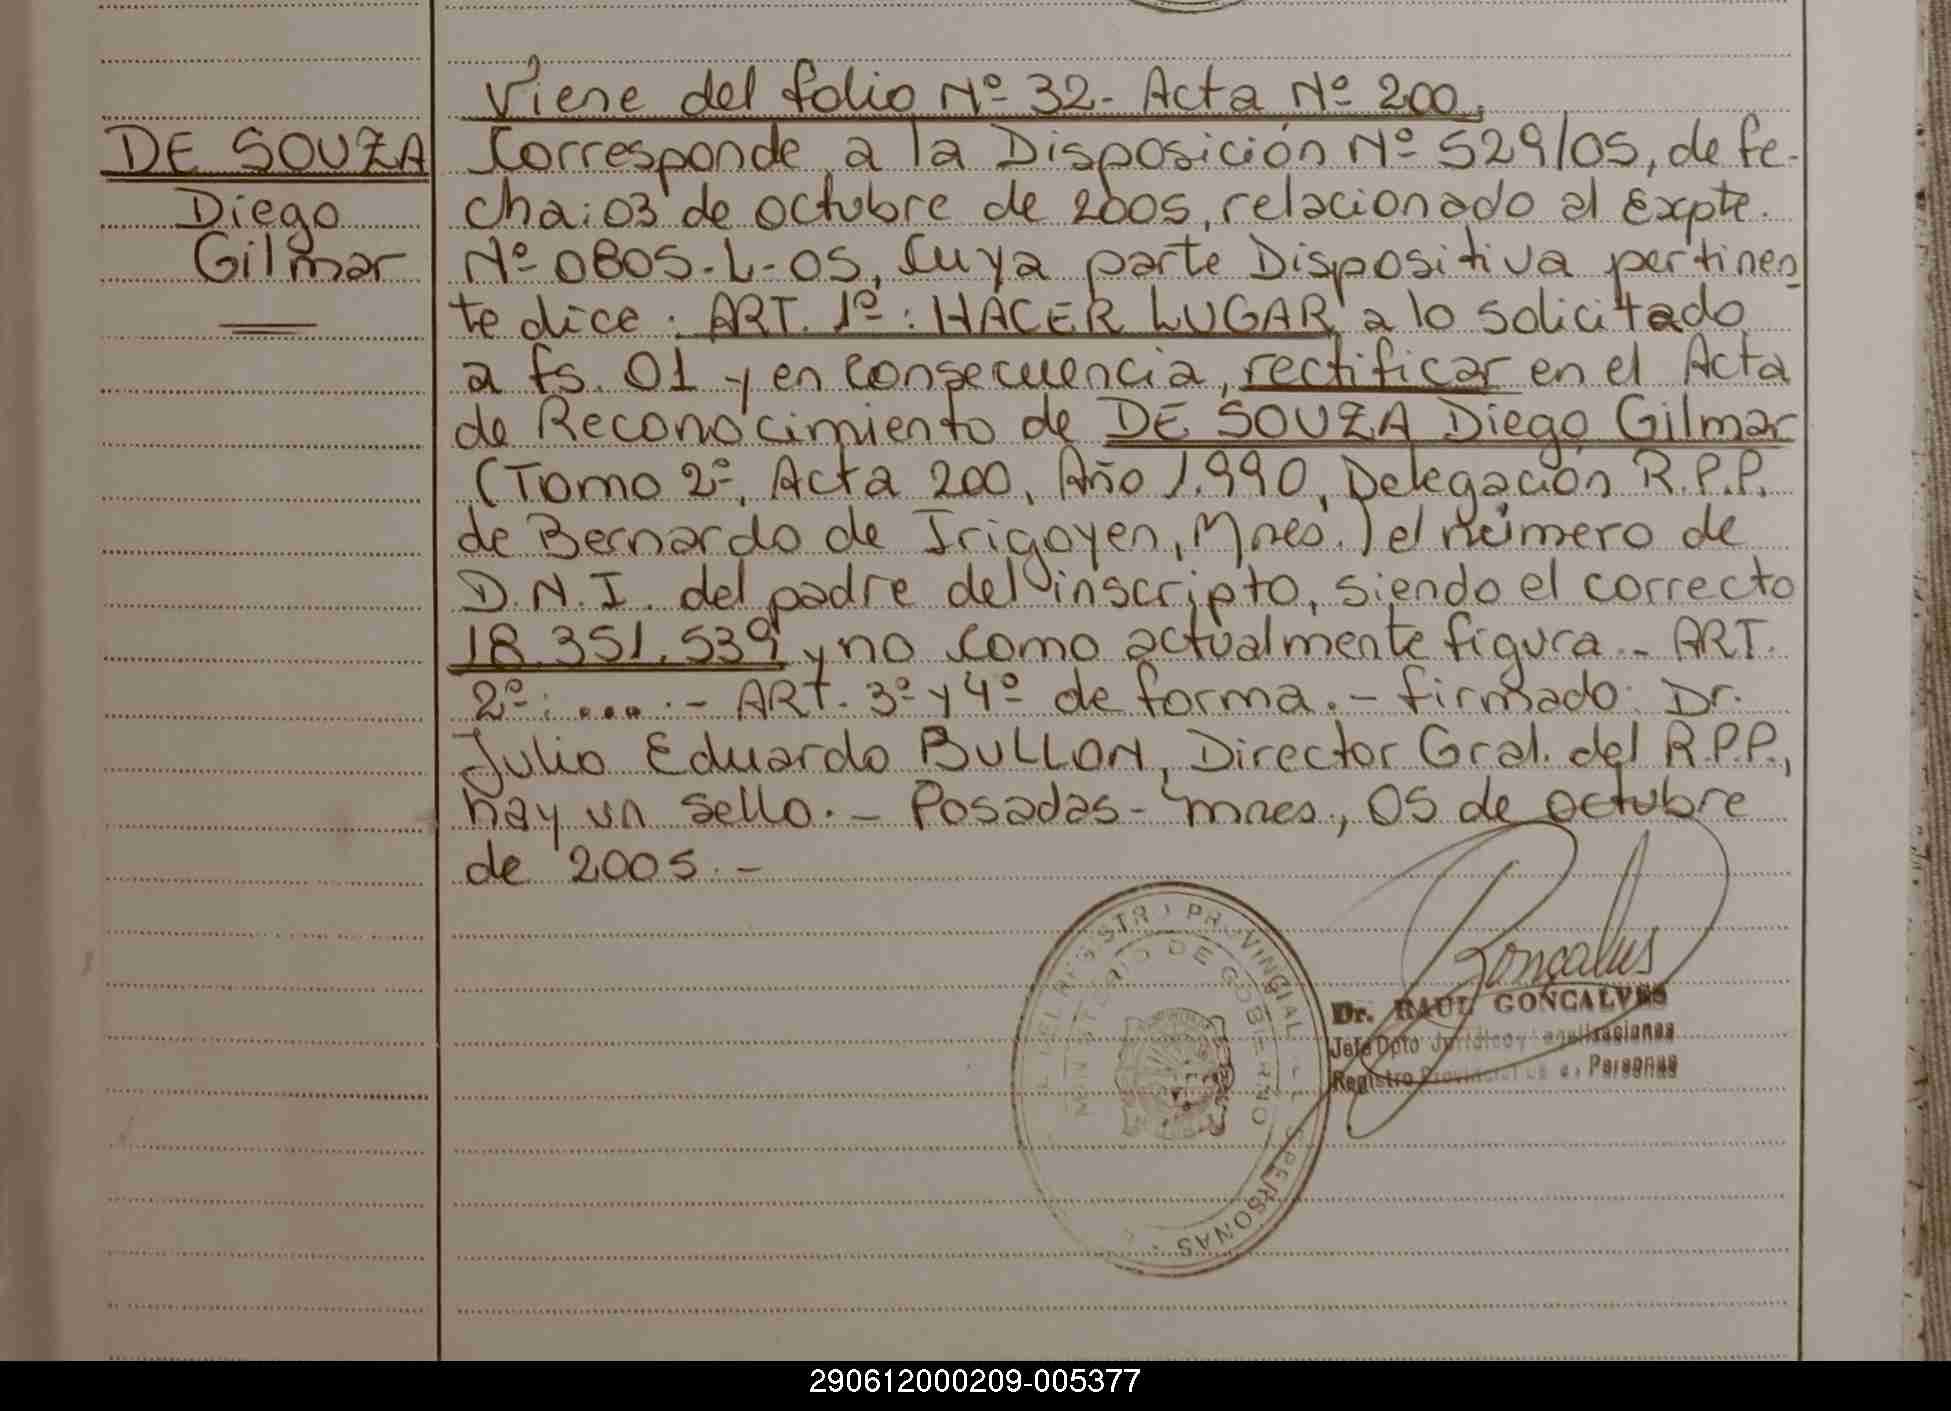 Viene del folio Nº 32- Acta Nº 200.
DE SOUZA
Diego
Gilmar
Corresponde a la Disposición Nº 529/05, de fe-
cha: 03 de octubre de 2005, relacionado al Expte.
Nº 0805-L-05, Cuya parte Dispositiva pertinen-
te dice: ART. 1º: HACER LUGAR a lo solicitado
a fs. 01 y en consecuencia, rectificar en el Acta
de Reconocimiento de DE SOUZA Diego Gilmar
(Tomo 2º, Acta 200, Año 1.990, Delegación R.P.P.
de Bernardo de Irigoyen, Mnes.) el número de
D.N.I. del padre del inscripto, siendo el correcto
18.351.539 y no como actualmente figura.- ART.
2º: .....- ART. 3º y 4º de forma.- firmado: Dr.
Julio Eduardo BULLON, Director Gral. del R.P.P.,
hay un sello.- Posadas- Mnes., 05 de octubre
de 2005.-
REGISTRO PROVINCIAL DE LAS PERSONAS
MINISTERIO DE GOBIERNO
Goncalves
Dr. RAUL GONCALVES
Jefe Dpto Jurídico y
Registro Provincial de las Personas
290612000209-005377